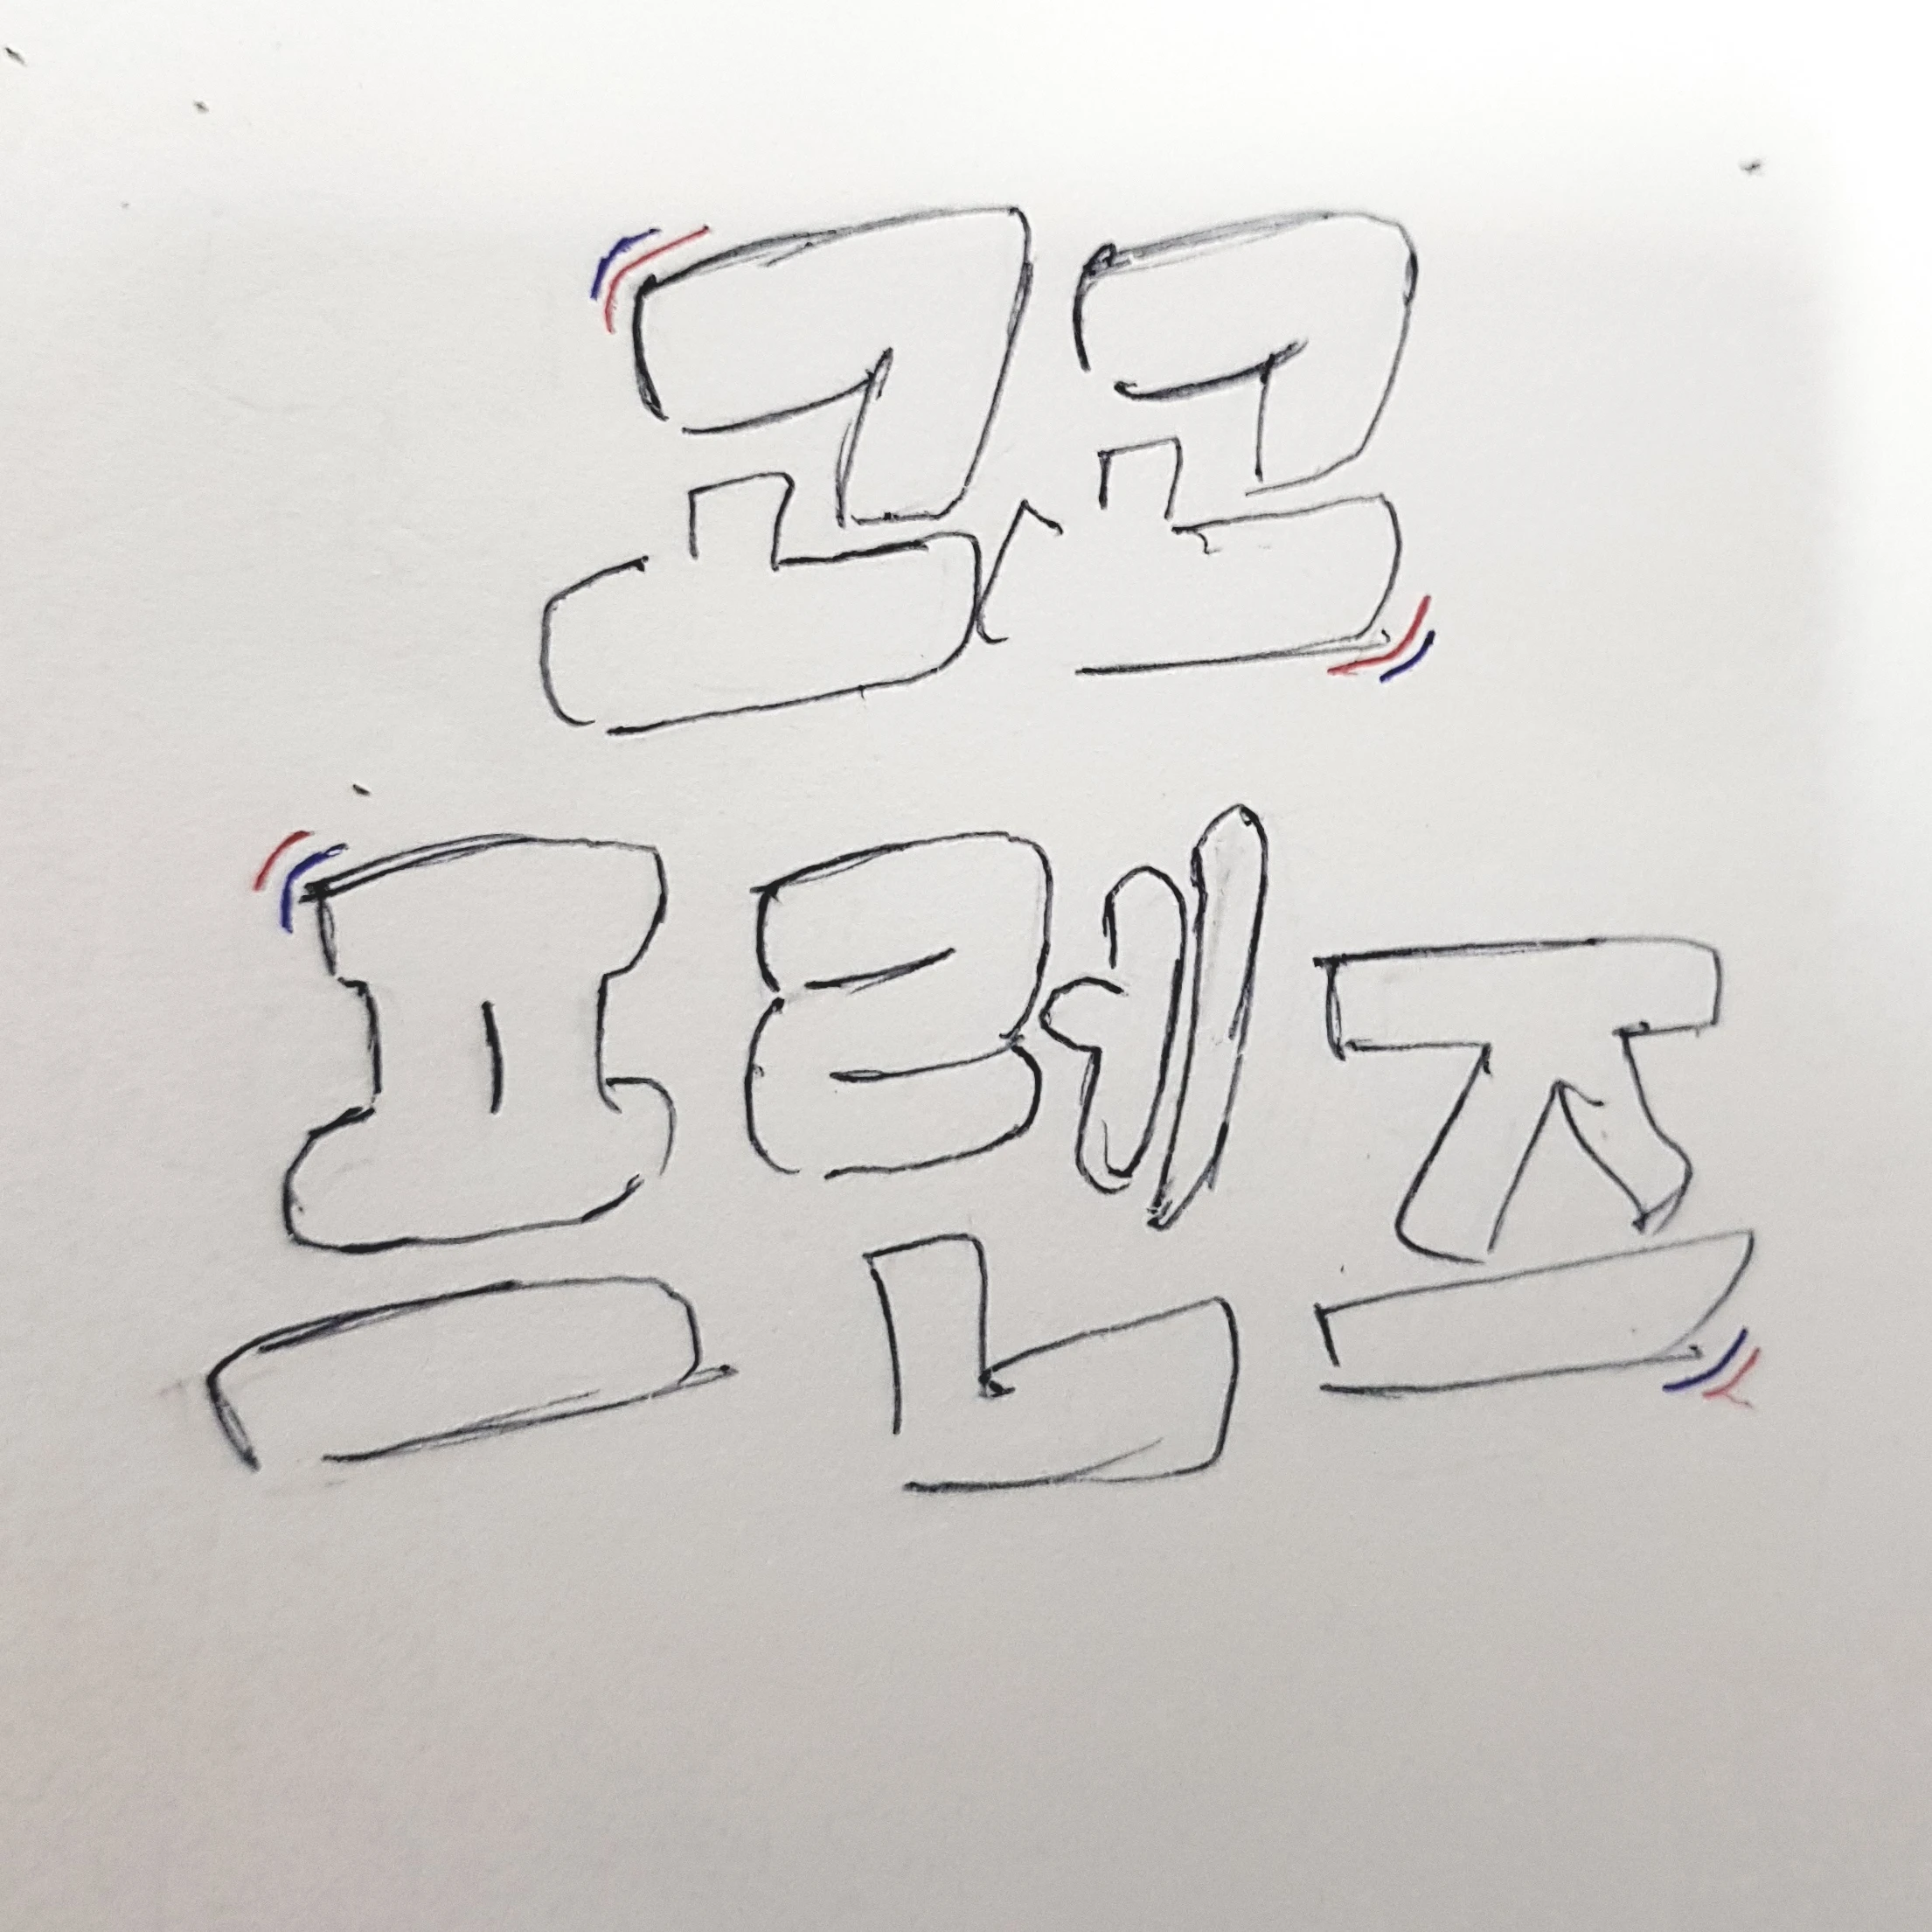 고고
프렌즈